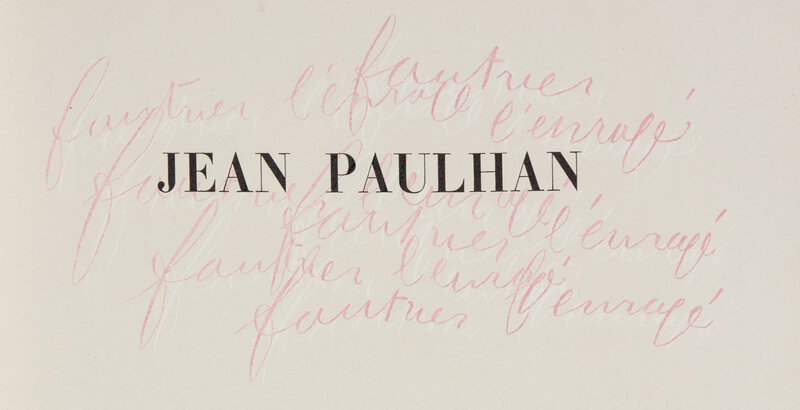 fautrier
fautrier l'enragé
l'enragé
JEAN PAULHAN
fautrier l'enragé
fautrier l'enragé
fautrier l'enragé
fautrier l'enragé